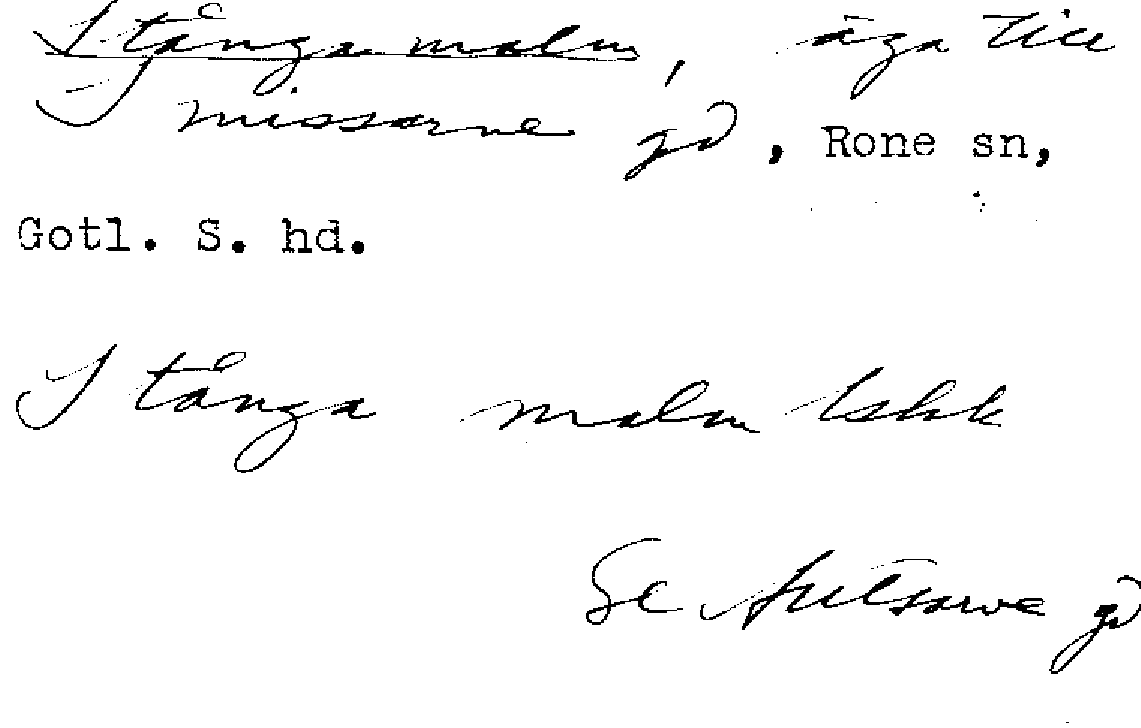 Stånga malm, äga till
Smissarve gd, Rone sn,
Gotl. S. hd.
Stånga malm lshk
Se Autsarve gd